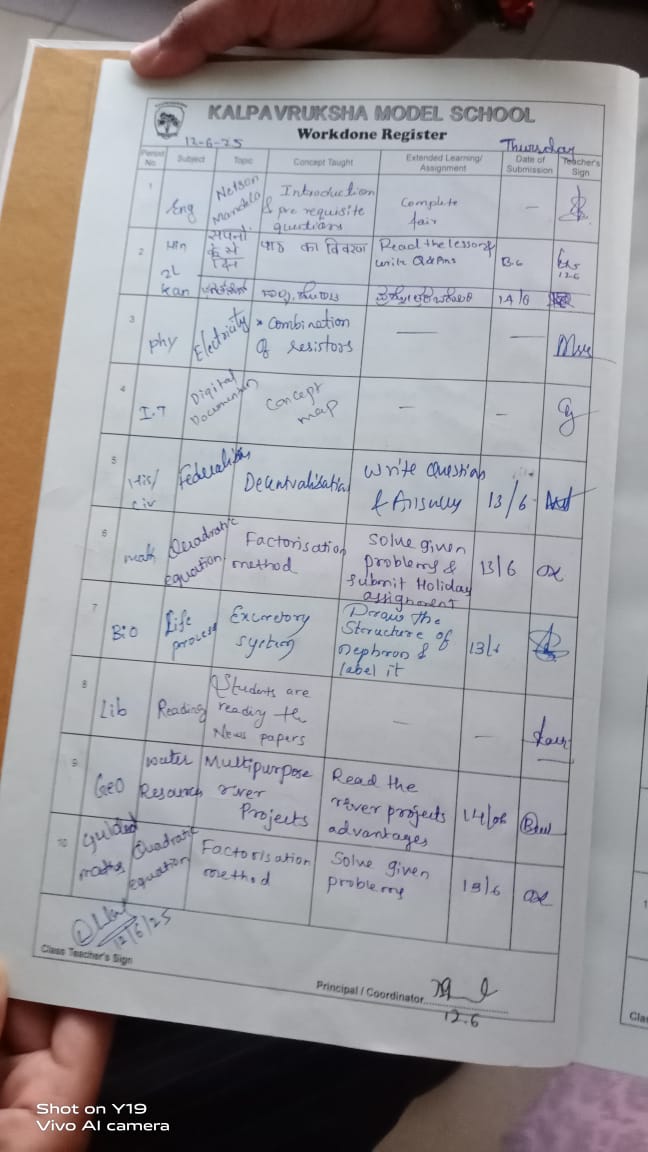 KALPAVRUKSHA MODEL SCHOOL
12-6-25
Workdone Register
Thursday
Period No
Subject
Topic
Concept Taught
Extended Learning/ Assignment
Date of Submission
Teacher's Sign
1
Eng
Nelson Mandela
Introduction
& pre requisite
questions
Complete
fair
—
2
Hin
2L
सपनों
के से
दिन
पाठ का विवरण
Read the lesson &
write Q & Ans
12.6
Kan
14/6
3
Phy
Electricity
* Combination
of resistors
—
—
4
I.T
Digital
Documentation
Concept
map
—
—
5
His/
civ
Federalism
Decentralisation
Write question
& Answers
13/6
6
math
Quadratic
equation
Factorisation
method
Solve given
problems &
submit Holiday
assignment
13/6
7
Bio
Life
process
Excretory
system
Draw the
Structure of
nephron &
label it
13/6
8
Lib
Reading
Students are
reading the
News papers
—
—
9
Geo
Water
Resources
Multipurpose
river
Projects
Read the
river projects
advantages
14/06
10
Guided
maths
Quadratic
equation
Factorisation
method
Solve given
problems
13/6
12/6/25
Class Teacher's Sign
Principal / Coordinator
12.6
Cla
Shot on Y19
Vivo AI camera